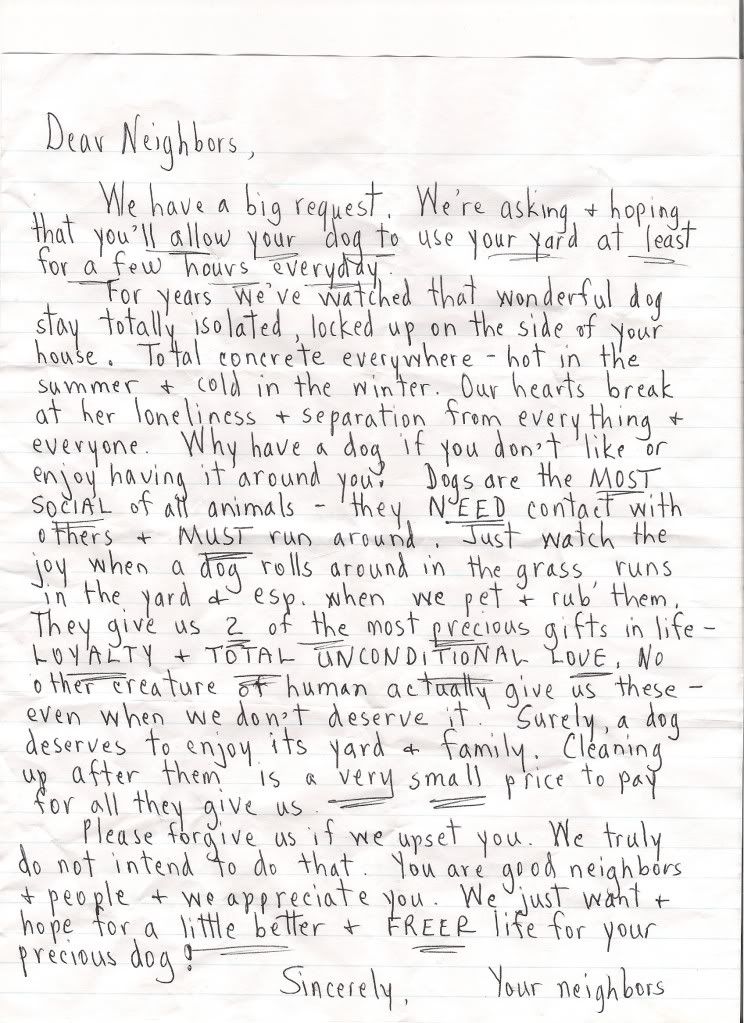 Dear Neighbors,
We have a big request. We're asking + hoping
that you'll allow your dog to use your yard at least
for a few hours everyday.
For years we've watched that wonderful dog
stay totally isolated, locked up on the side of your
house. Total concrete everywhere - hot in the
summer + cold in the winter. Our hearts break
at her loneliness + separation from everything +
everyone. Why have a dog if you don't like or
enjoy having it around you? Dogs are the MOST
SOCIAL of all animals - they NEED contact with
others + MUST run around. Just watch the
joy when a dog rolls around in the grass runs
in the yard & esp. when we pet + rub them.
They give us 2 of the most precious gifts in life -
LOYALTY + TOTAL UNCONDITIONAL LOVE. No
other creature of human actually give us these -
even when we don't deserve it. Surely, a dog
deserves to enjoy its yard & family. Cleaning
up after them is a very small price to pay
for all they give us.
Please forgive us if we upset you. We truly
do not intend to do that. You are good neighbors
+ people + we appreciate you. We just want +
hope for a little better + FREER life for your
precious dog!
Sincerely, Your neighbors